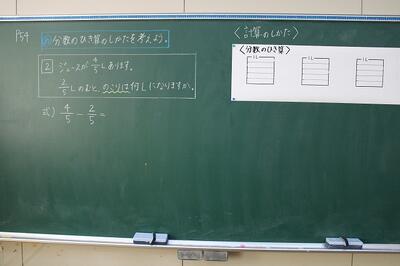 P54
め 分数のひき算のしかたを考えよう。
2 ジュースが4/5Lあります。
2/5Lのむと、のこりは何Lになりますか。
式) 4/5 - 2/5 =
〈計算のしかた〉
〈分数のひき算〉
1L 1L 1L